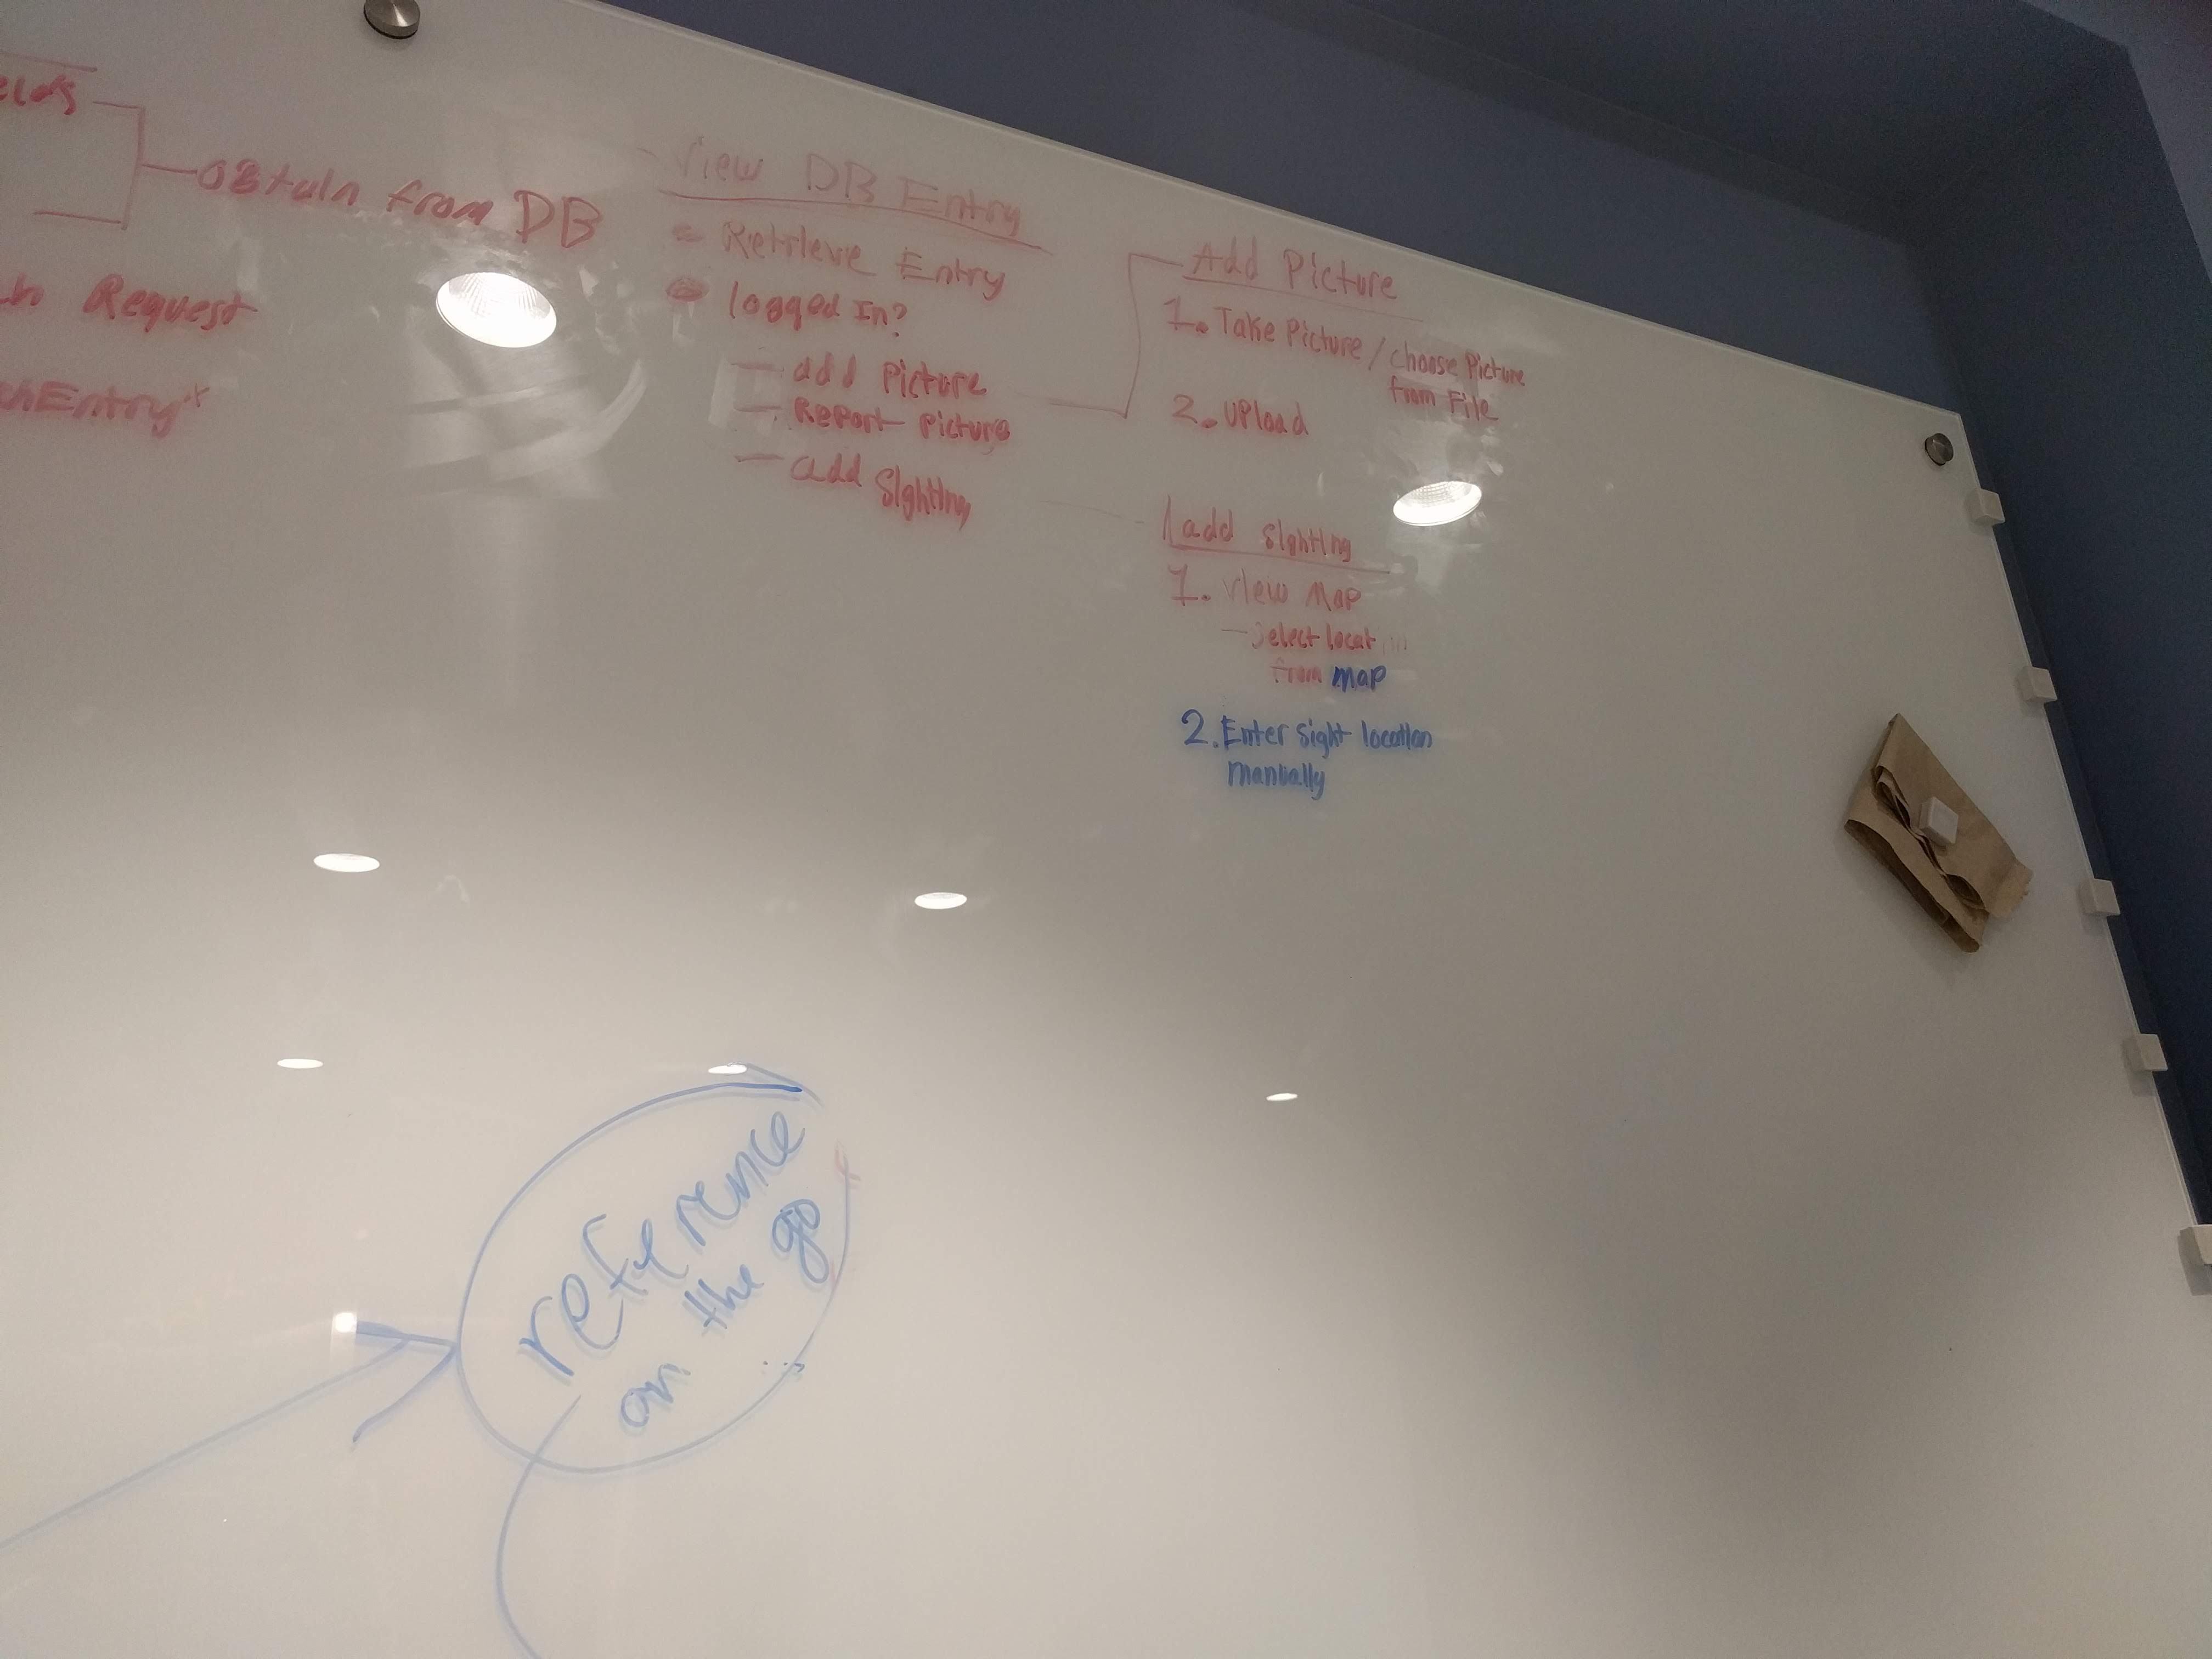 obtain from DB
Request
View DB Entry
Retrieve Entry
logged In?
— add Picture
— Report Picture
— add Sighting
Add Picture
1. Take Picture / choose Picture
from File
2. Upload
add sighting
1. view Map
— Select locat
from map
2. Enter sight location
manually
reference
on the go